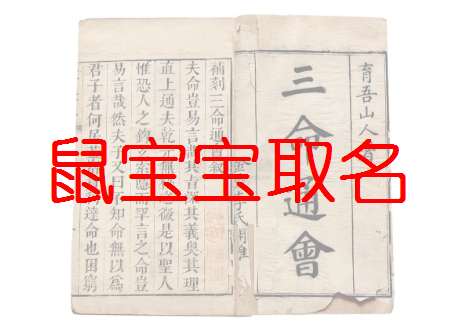 鼠宝宝取名
育吾山人
三命通會
補刻三命通會
夫命豈易言其義奥其理
直上通夫乾是以聖人
惟恐人之而罕言之命豈
易言哉然夫子又曰不知命無以為
君子者何達命也困窮